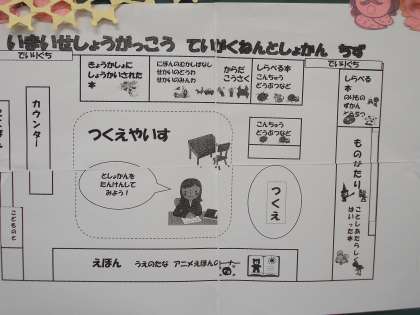 いまいせしょうがっこう ていがくねんとしょかん ちず
でいりぐち
きょうかしょに
しょうかいされた
本
にほんのむかしばなし
せかいのどうわ
せかいのみんわ
からだ
こうさく
しらべる本
こんちゅう
どうぶつなど
でいりぐち
しらべる本
のりもの
ずかん
カウンター
つくえやいす
こんちゅう
どうぶつなど
としょかんを
たんけんして
みよう！
つくえ
ものがたり
ことしあたらしく
はいった本
えほん うえのたな アニメえほんの